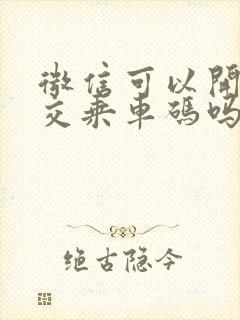 微信可以開
交乘車碼吗
绝古隐今